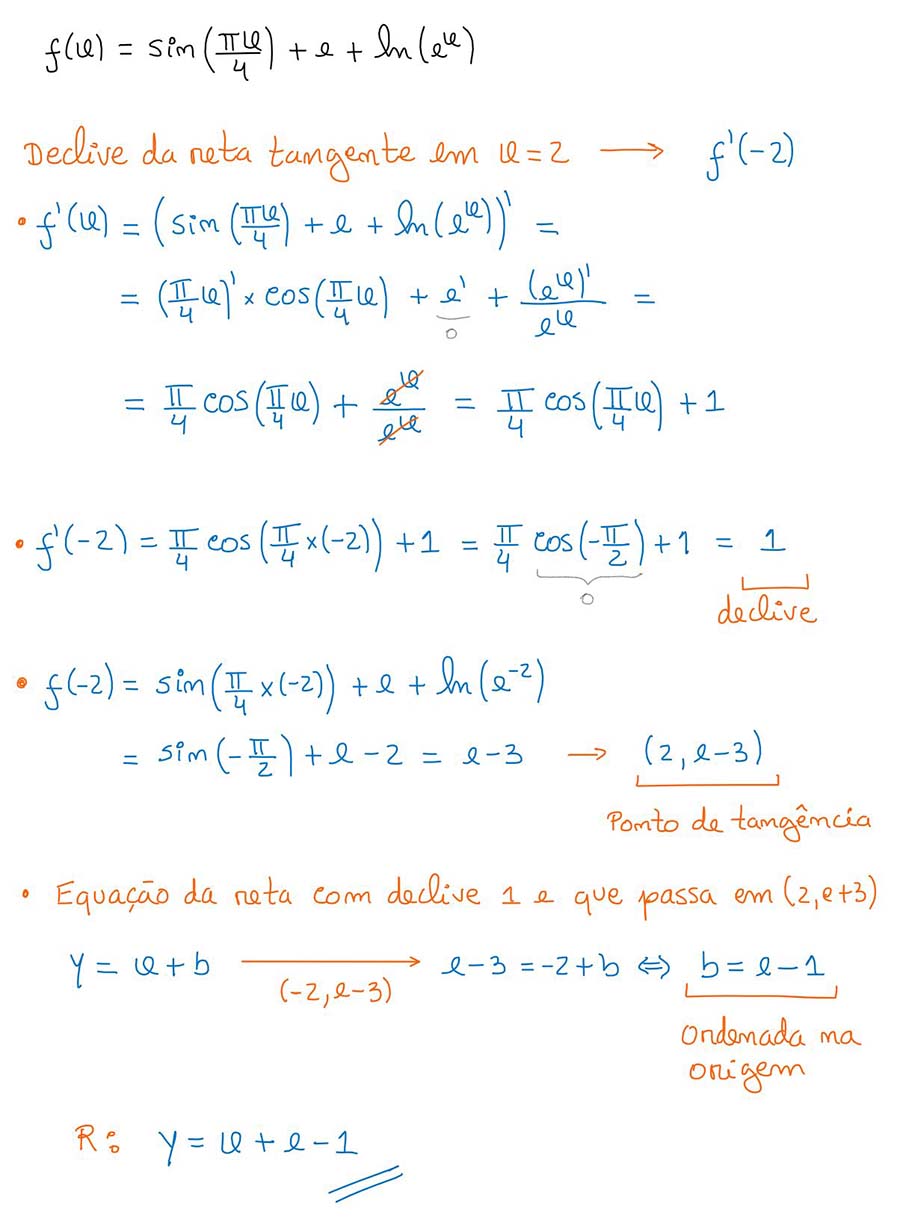 f(x) = sin(πx/4) + e + ln(e^x)
Declive da reta tangente em x = 2 → f'(-2)
• f'(x) = (sin(πx/4) + e + ln(e^x))' =
= (π/4 x)' × cos(π/4 x) + e' + (e^x)'/e^x =
0
= π/4 cos(π/4 x) + e^x/e^x = π/4 cos(π/4 x) + 1
• f'(-2) = π/4 cos(π/4 × (-2)) + 1 = π/4 cos(-π/2) + 1 = 1
0 declive
• f(-2) = sin(π/4 × (-2)) + e + ln(e^-2)
= sin(-π/2) + e - 2 = e - 3 → (2, e-3)
Ponto de tangência
• Equação da reta com declive 1 e que passa em (2, e+3)
y = x + b → e - 3 = -2 + b ⇔ b = e - 1
(-2, e-3)
Ordenada na
origem
R: y = x + e - 1